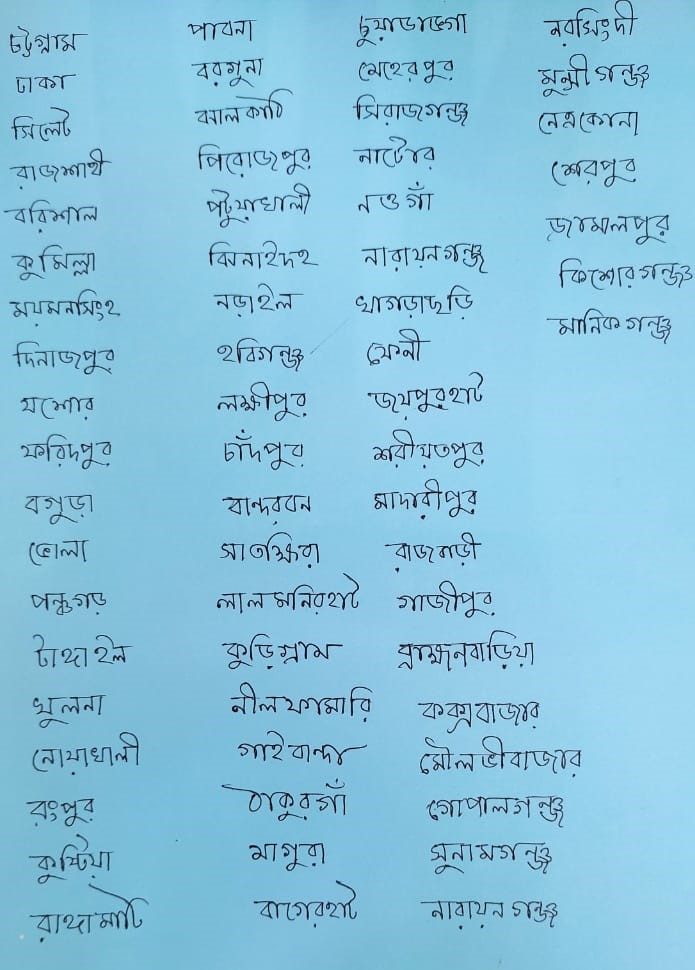 চট্টগ্রাম
ঢাকা
সিলেট
রাজশাহী
বরিশাল
কুমিল্লা
ময়মনসিংহ
দিনাজপুর
যশোর
ফরিদপুর
বগুড়া
ভোলা
পঞ্চগড়
টাঙ্গাইল
খুলনা
নোয়াখালী
রংপুর
কুষ্টিয়া
রাঙ্গামাটি
পাবনা
বরগুনা
ঝালকাঠি
পিরোজপুর
পটুয়াখালী
ঝিনাইদহ
নড়াইল
হবিগঞ্জ
লক্ষীপুর
চাঁদপুর
বান্দরবন
সাতক্ষিরা
লালমনিরহাট
কুড়িগ্রাম
নীলফামারি
গাইবান্দা
ঠাকুরগাঁ
মাগুরা
বাগেরহাট
চুয়াডাঙ্গা
মেহেরপুর
সিরাজগন্ঞ্জ
নাটোর
নওগাঁ
নারায়নগন্ঞ্জ
খাগড়াছড়ি
ফেনী
জয়পুরহাট
শরীয়তপুর
মাদারীপুর
রাজবাড়ী
গাজীপুর
ব্রাহ্মনবাড়িয়া
কক্সবাজার
মৌলভীবাজার
গোপালগন্ঞ্জ
সুনামগন্ঞ্জ
নারায়নগন্ঞ্জ
নরসিংদী
মুন্সীগন্ঞ্জ
নেত্রকোনা
শেরপুর
জামালপুর
কিশোরগন্ঞ্জ
মানিকগন্ঞ্জ